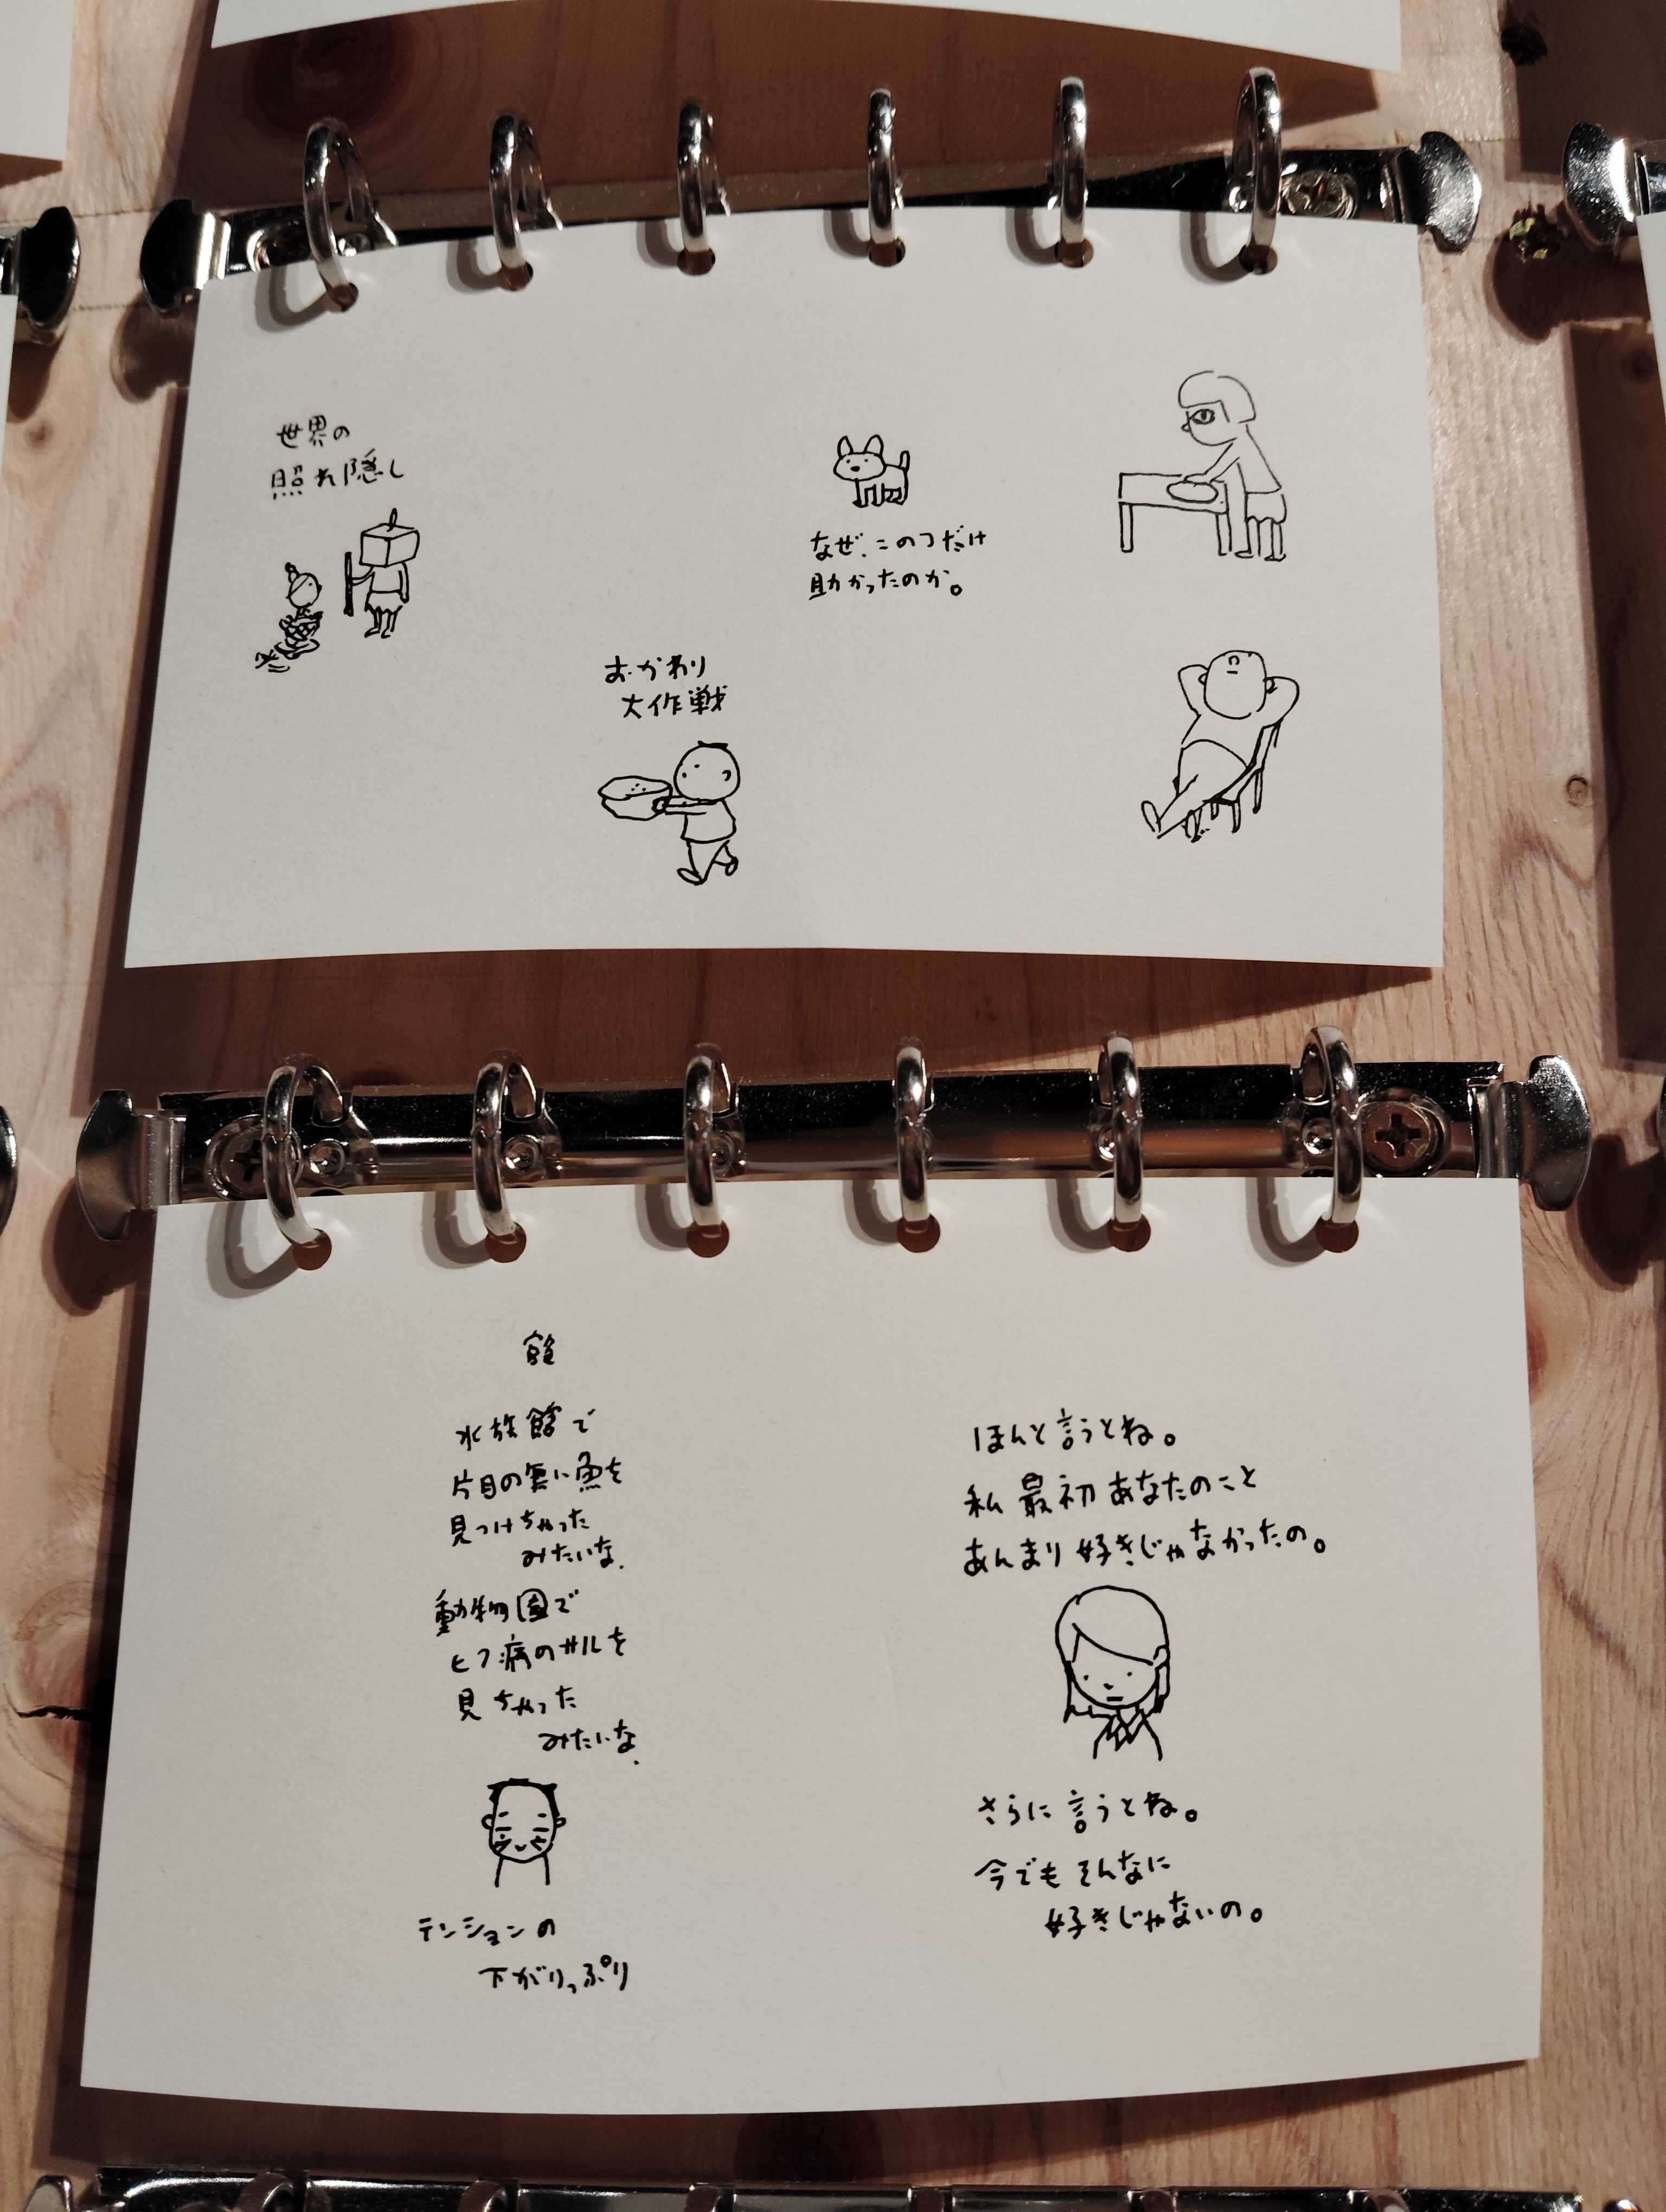 世界の
照れ隠し
なぜ、このコだけ
助かったのか。
おかわり
大作戦
館
水族館で
片目の無い魚を
見つけちゃった
みたいな.
動物園で
ヒフ病のサルを
見ちゃった
みたいな.
テンションの
下がりっぷり
ほんと言うとね。
私最初あなたのこと
あんまり好きじゃなかったの。
さらに言うとね。
今でもそんなに
好きじゃないの。